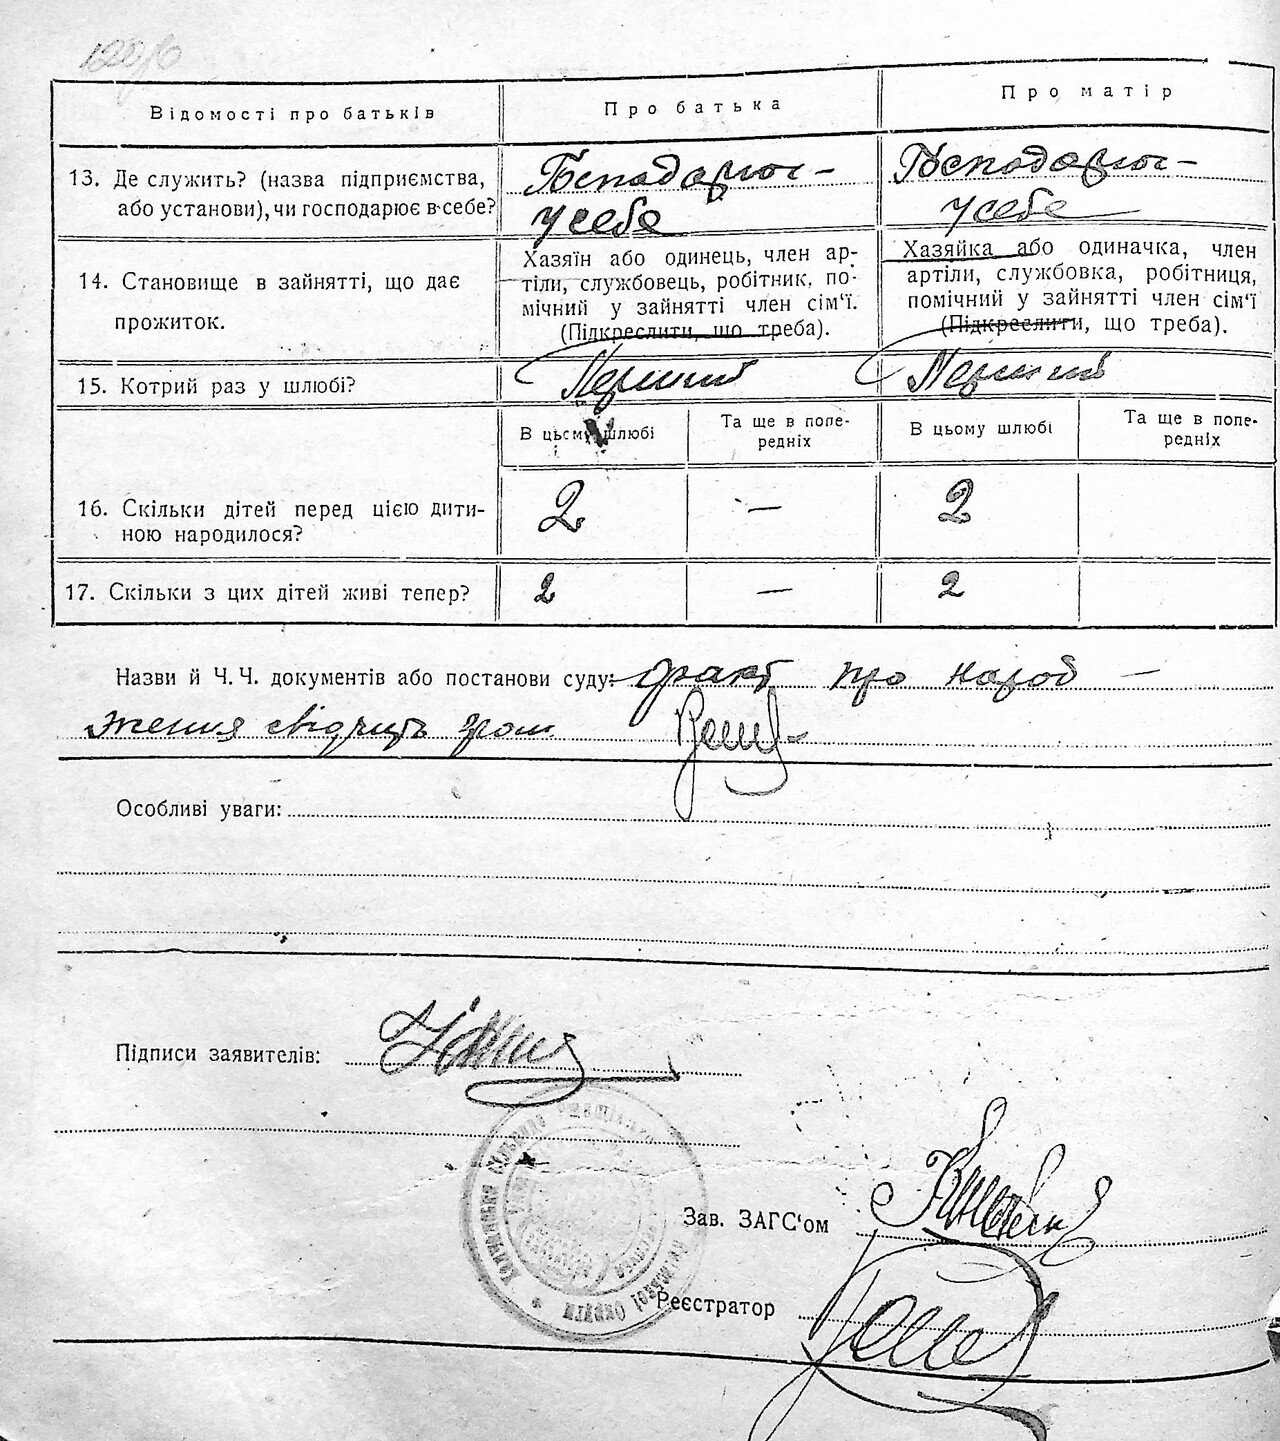 Відомості про батьків
Про батька
Про матір
13. Де служить? (назва підприємства,
або установи), чи господарює в себе?
Господарює
у себе
Господарює
у себе
14. Становище в зайнятті, що дає
прожиток.
Хазяїн або одинець, член ар-
тіли, службовець, робітник, по-
мічний у зайнятті член сім'ї.
(Підкреслити, що треба).
Хазяйка або одиначка, член
артіли, службовка, робітниця,
помічний у зайнятті член сім'ї
(Підкреслити, що треба).
15. Котрий раз у шлюбі?
Перший
Перший
В цьому шлюбі
Та ще в попе-
редніх
В цьому шлюбі
Та ще в попе-
редніх
16. Скільки дітей перед цією дити-
ною народилося?
2
—
2
17. Скільки з цих дітей живі тепер?
2
—
2
Назви й Ч. Ч. документів або постанови суду: факт про народ
ження свідчить гром.
Особливі уваги:
Підписи заявителів:
Зав. ЗАГС'ом
Реєстратор